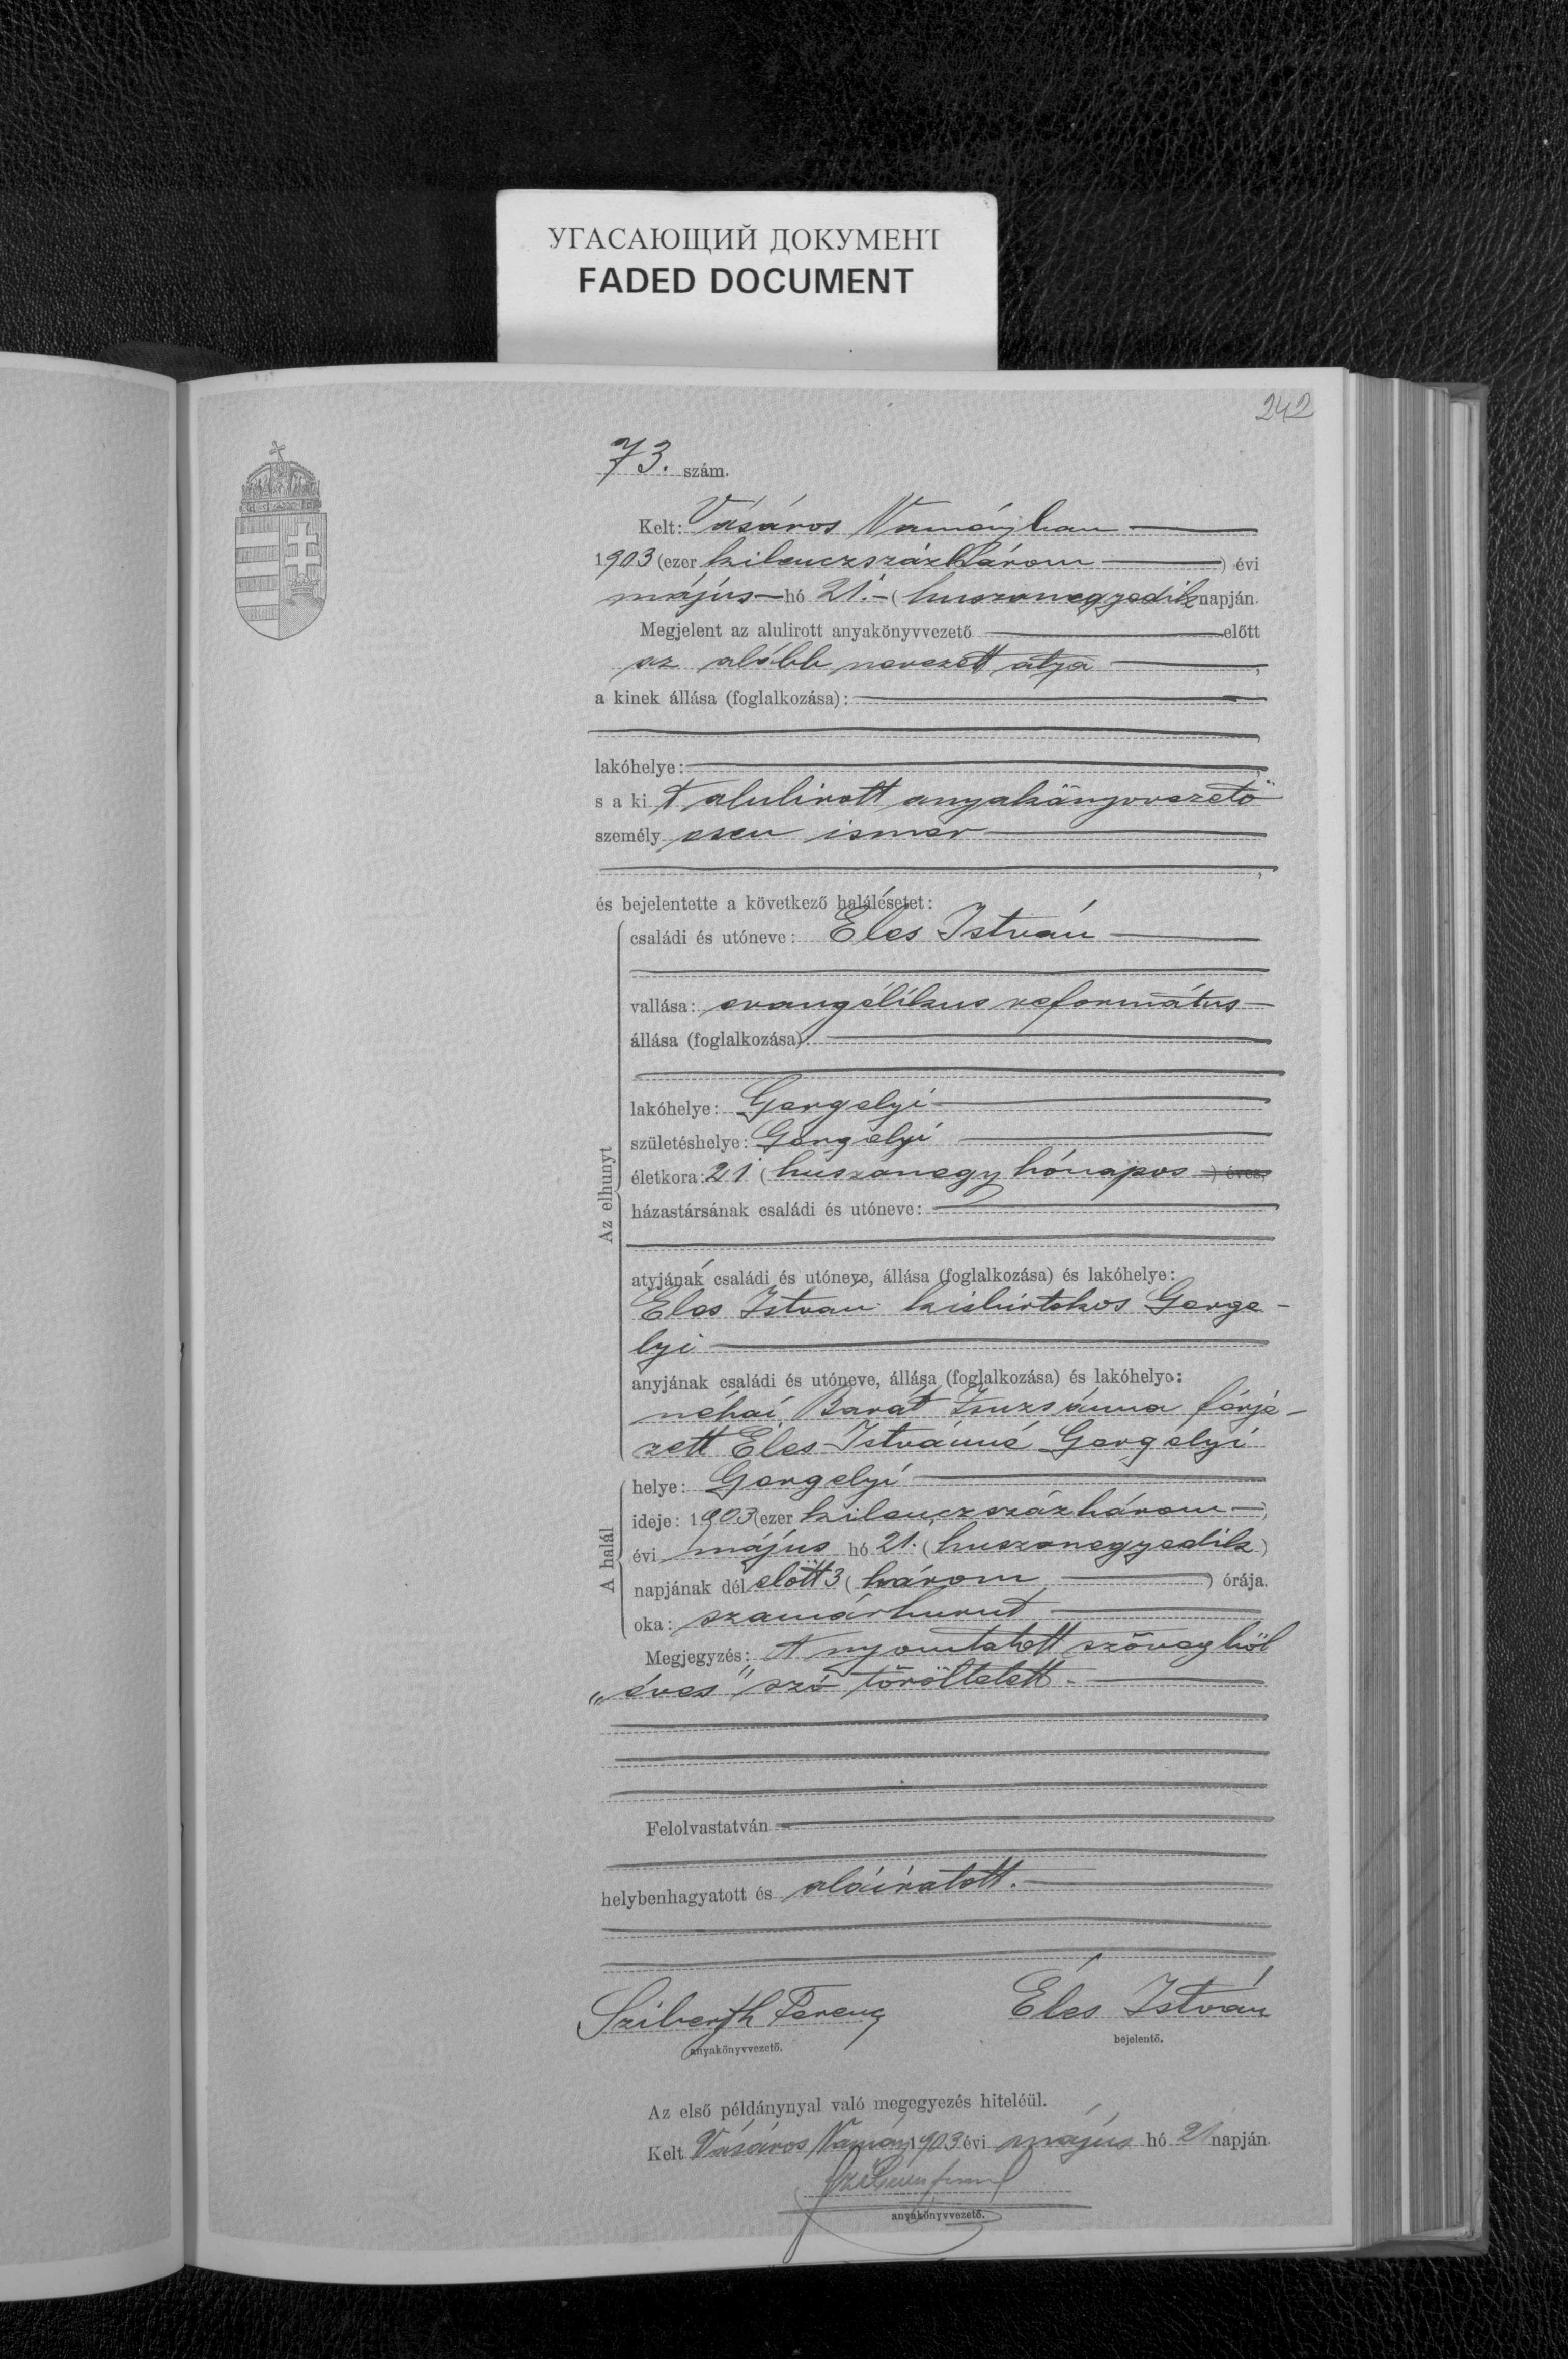 УГАСАЮЩИЙ ДОКУМЕНТ
FADED DOCUMENT
242
73. szám.
Kelt: Vásáros Naményban
1903 (ezer kilenczszázhárom ) évi
május hó 21. (huszonegyedik napján.
Megjelent az alulirott anyakönyvvezető előtt
az alább nevezett atya ,
a kinek állása (foglalkozása):
lakóhelye:
s a ki t alulirott anyakönyvvezető
személy esen ismer
és bejelentette a következő halálesetet:
Az elhunyt
családi és utóneve: Eles István
vallása: evangélikus református
állása (foglalkozása):
lakóhelye: Gergelyi
születéshelye: Gergelyi
életkora: 21 (huszonegy hónapos ) éves,
házastársának családi és utóneve:
atyjának családi és utóneve, állása (foglalkozása) és lakóhelye:
Éles István kisbirtokos Gerge-
lyi
anyjának családi és utóneve, állása (foglalkozása) és lakóhelye:
néhai Barát Zsuzsánna férje-
zett Éles Istvánné Gergelyi
A halál
helye: Gergelyi
ideje: 1903 (ezer kilenczszázhárom )
évi május hó 21. (huszonegyedik)
napjának dél előtt 3 (három ) órája.
oka: szamárhurut
Megjegyzés: A nyomtatott szövegből
„éves" szó töröltetett.
Felolvastatván
helybenhagyatott és aláíratott.
Ferencz Éles István
anyakönyvvezető. bejelentő.
Az első példánynyal való megegyezés hiteléül.
Kelt Vásáros Namény 1903 évi május hó 21 napján.
anyakönyvvezető.